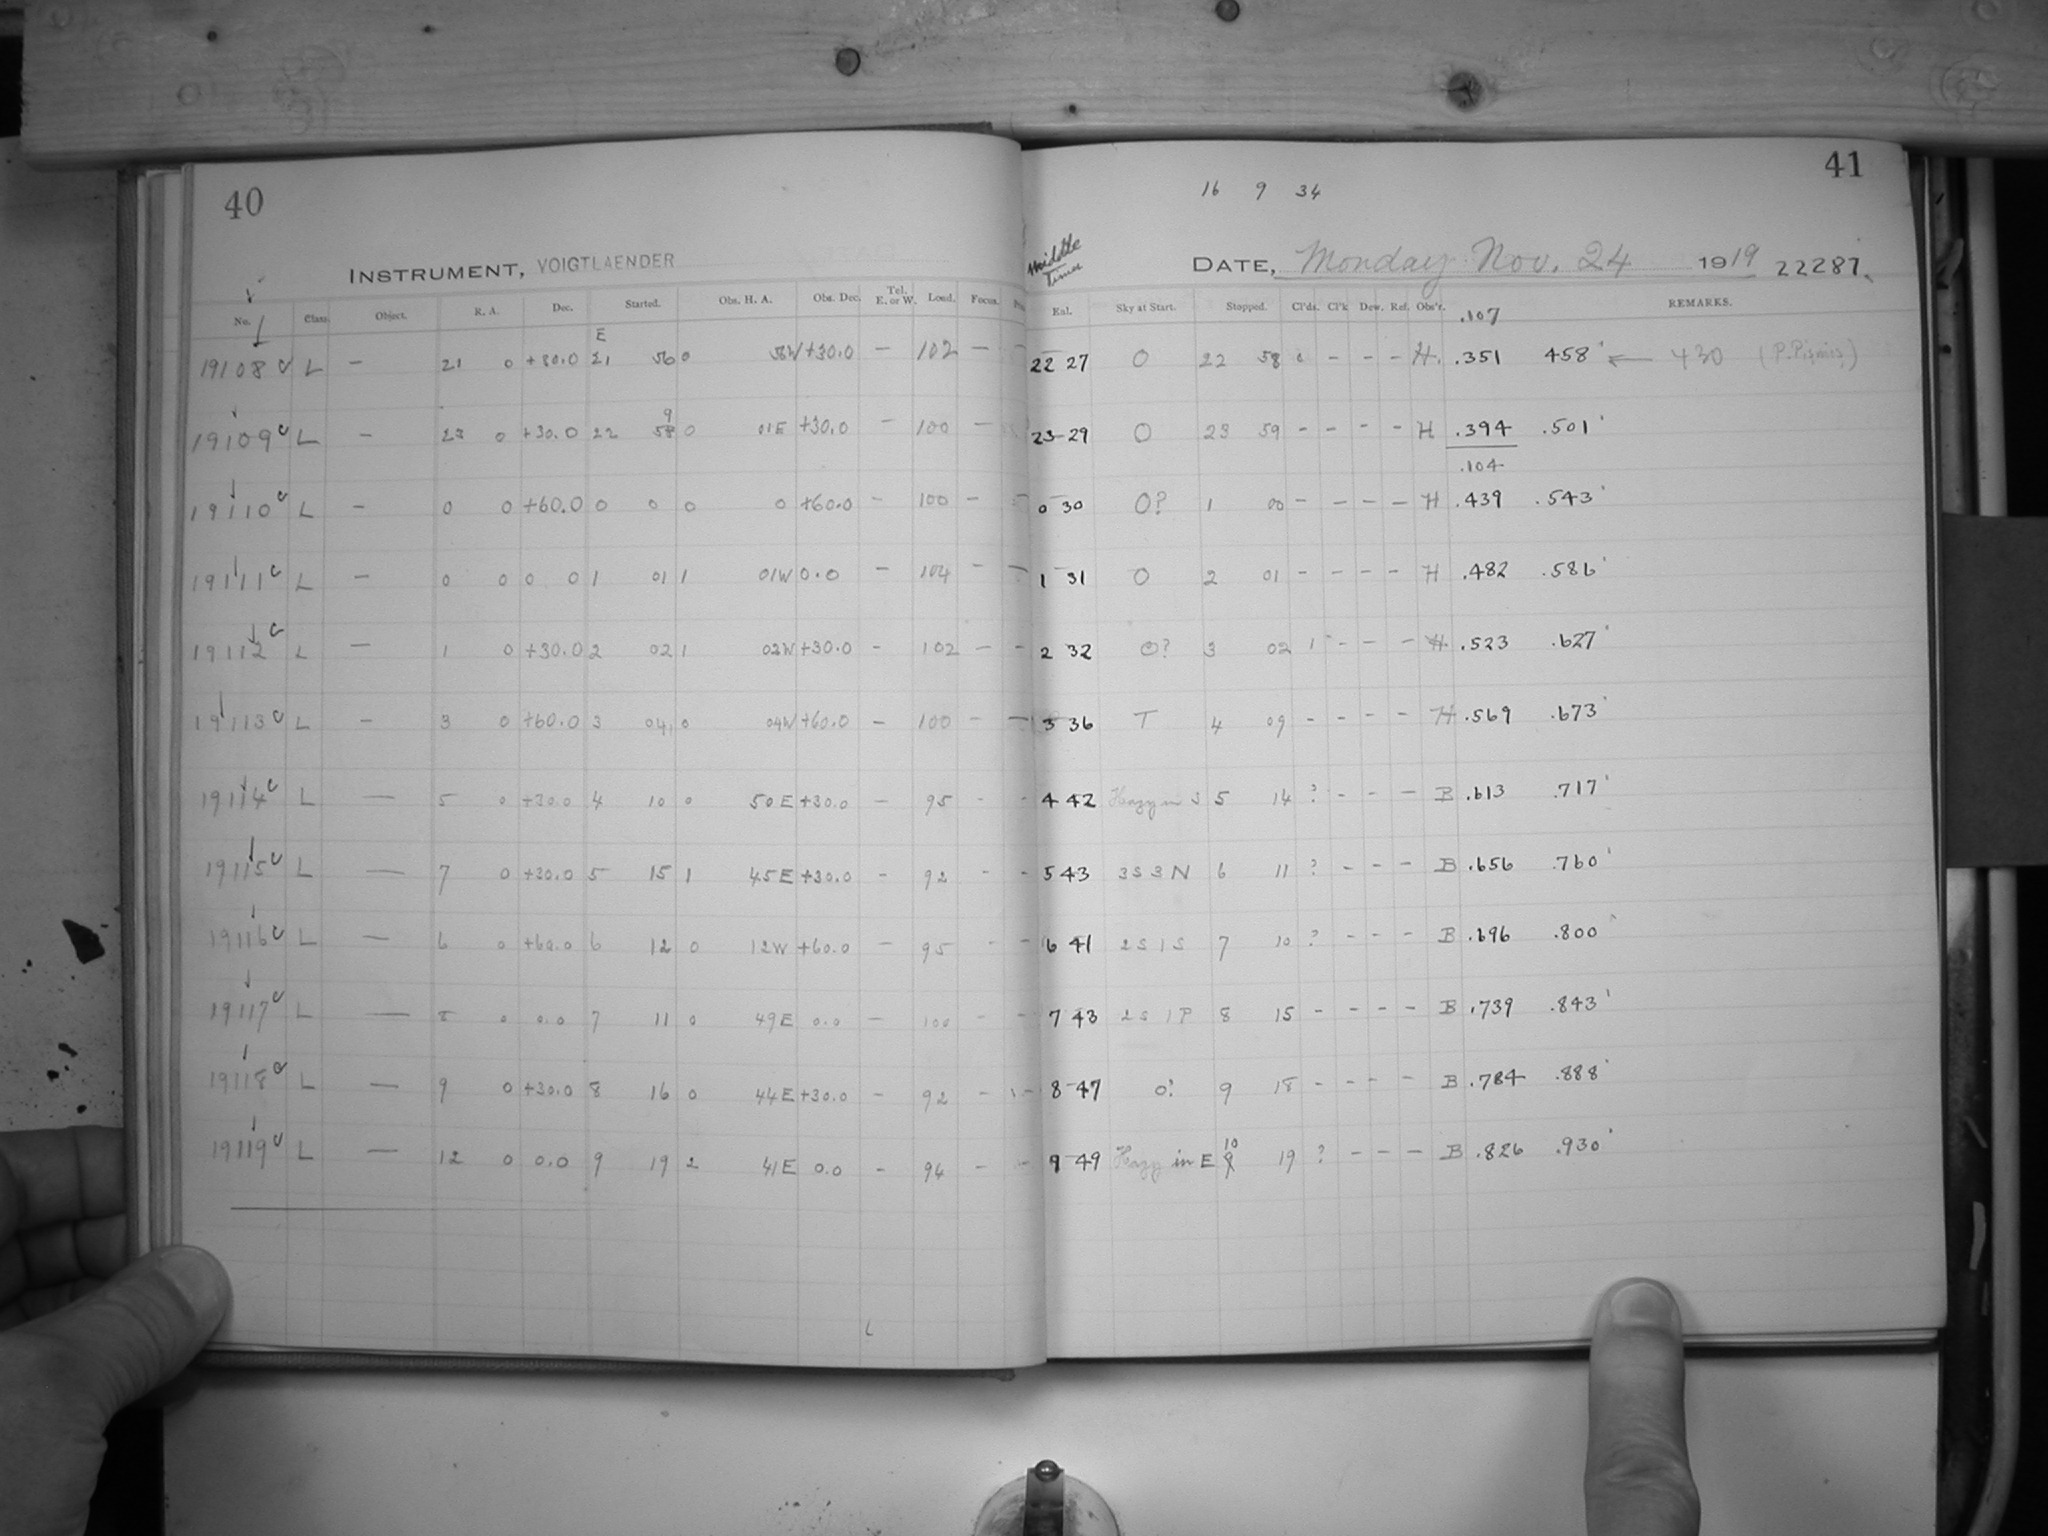 40
INSTRUMENT, VOIGTLAENDER
No. Class. Object. R. A. Dec. Started. Obs. H. A. Obs. Dec. Tel. E. or W. Load. Focus.
E
19108 c L — 21 0 +30.0 21 56 0 58W +30.0 — 102 —
9
19109 c L — 23 0 +30.0 22 58 0 01E +30.0 — 100 —
19110 c L — 0 0 +60.0 0 0 0 0 +60.0 — 100 —
19111 c L — 0 0 0 0 1 01 1 01W 0.0 — 104 —
19112 c L — 1 0 +30.0 2 02 1 02W +30.0 - 102 — -
19113 c L — 3 0 +60.0 3 04 0 04W +60.0 — 100 - —
19114 c L — 5 0 +30.0 4 10 0 50E +30.0 - 95 - -
19115 c L — 7 0 +30.0 5 15 1 45E +30.0 - 92 - -
19116 c L — 6 0 +60.0 6 12 0 12W +60.0 — 95 - -
19117 c L — 8 0 0.0 7 11 0 49E 0.0 — 100 - -
19118 c L — 9 0 +30.0 8 16 0 44E +30.0 - 92 - -
19119 c L — 12 0 0.0 9 19 2 41E 0.0 - 94 - -
41
16 9 34
Middle Times
DATE, Monday Nov. 24 1919 22287.
Enl. Sky at Start. Stopped. Cl'ds. Cl'k Dew. Ref. Obs'r. REMARKS.
.107
22 27 O 22 58 - - - H. .351 458 ← 430
23 29 O 23 59 - - - - H .394 .501
.104
0 30 O? 1 00 - - - - H .439 .543
1 31 O 2 01 - - - - H .482 .586
2 32 O? 3 02 1 - - - H. .523 .627
3 36 T 4 09 - - - - H .569 .673
4 42 Hazy in S 5 14 ? - - - B .613 .717
5 43 3S 3N 6 11 ? - - - B .656 .760
6 41 2S 1S 7 10 ? - - - B .696 .800
7 43 2S 1P 8 15 - - - - B .739 .843
8 47 0? 9 18 - - - - B .784 .888
10
9 49 Hazy in E 9 19 ? - - - B .826 .930